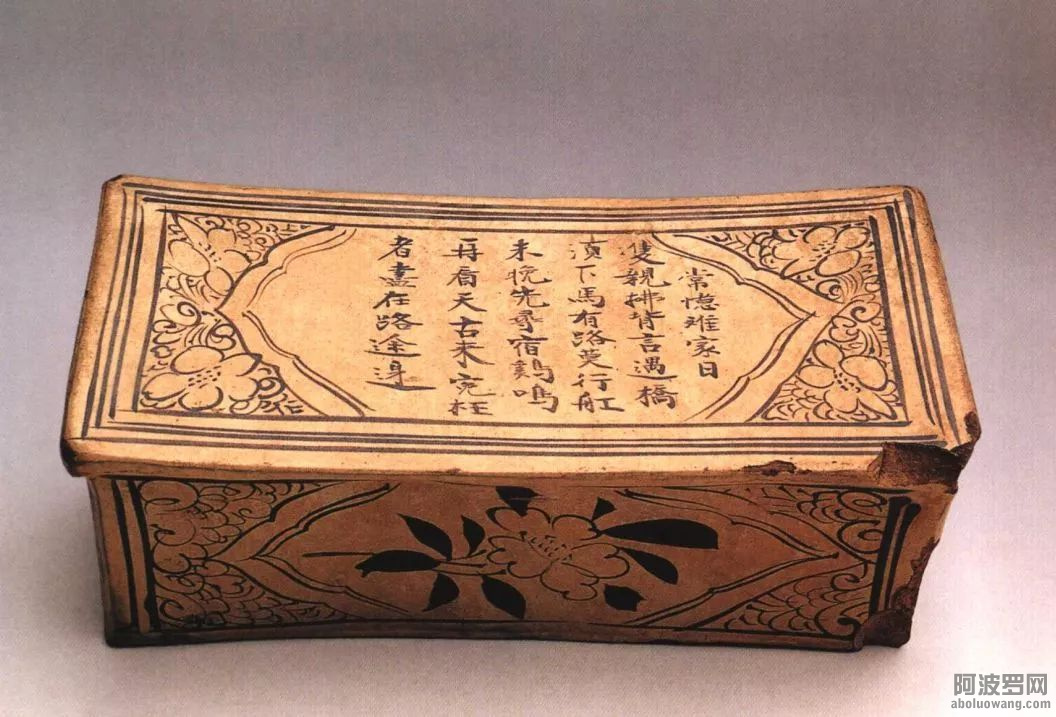 常憶離家日
隻親拂背言遇橋
須下馬有路莫行舡
未晚先尋宿鷄鳴
再看天古来冤枉
者盡在路途邊
阿波罗网
aboluowang.com